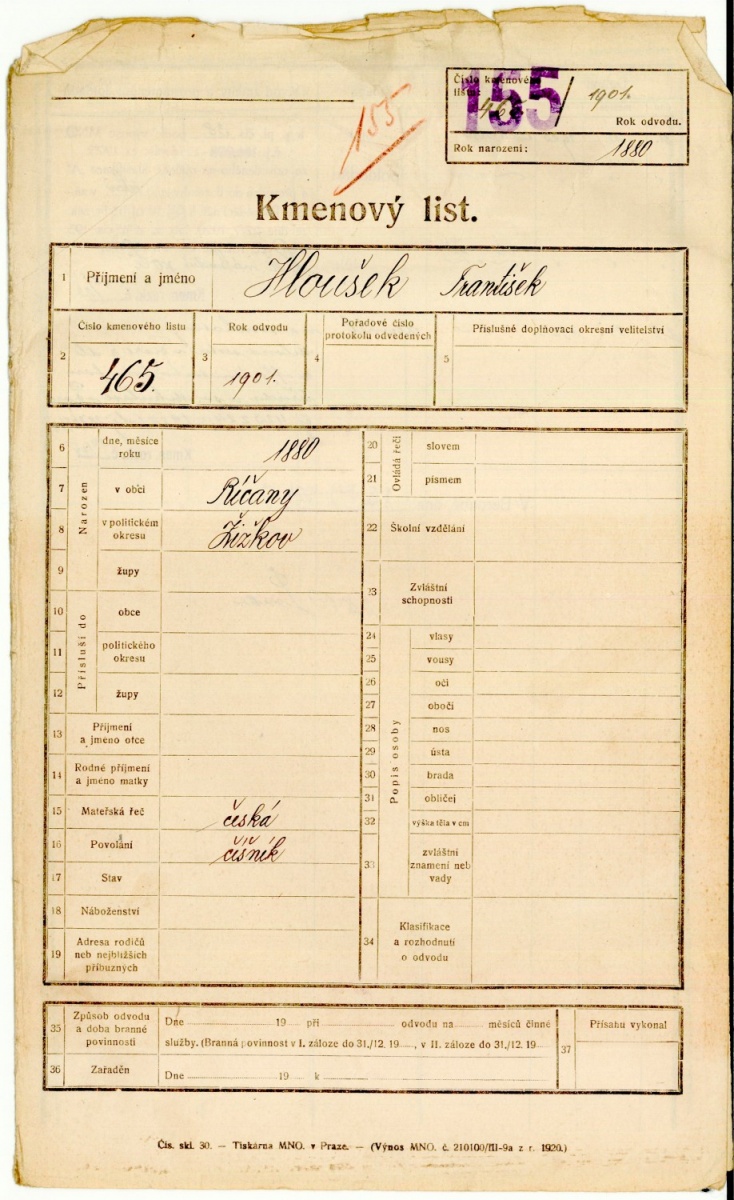 155
Číslo kmenového
listu: 465 / 1901.
155
Rok odvodu.
Rok narození: 1880
Kmenový list.
1 Příjmení a jméno Hloušek František
2 Číslo kmenového listu 465.
3 Rok odvodu 1901.
4 Pořadové číslo
protokolu odvedených
5 Příslušné doplňovací okresní velitelství
Narozen
6 dne, měsíce
roku 1880
7 v obci Říčany
8 v politickém
okresu Žižkov
9 župy
Přísluší do
10 obce
11 politického
okresu
12 župy
13 Příjmení
a jméno otce
14 Rodné příjmení
a jméno matky
15 Mateřská řeč česká
16 Povolání číšník
17 Stav
18 Náboženství
19 Adresa rodičů
neb nejbližších
příbuzných
Ovládá řeči
20 slovem
21 písmem
22 Školní vzdělání
23 Zvláštní
schopnosti
Popis osoby
24 vlasy
25 vousy
26 oči
27 obočí
28 nos
29 ústa
30 brada
31 obličej
32 výška těla v cm
33 zvláštní
znamení neb
vady
34 Klasifikace
a rozhodnutí
o odvodu
35 Způsob odvodu
a doba branné
povinnosti
Dne 19 při odvodu na měsíců činné
služby. (Branná povinnost v I. záloze do 31./12. 19 , v II. záloze do 31./12. 19
36 Zařaděn
Dne 19 k
37 Přísahu vykonal
Čís. skl. 30. — Tiskárna MNO. v Praze. — (Výnos MNO. č. 210100/III-9a z r. 1920.)